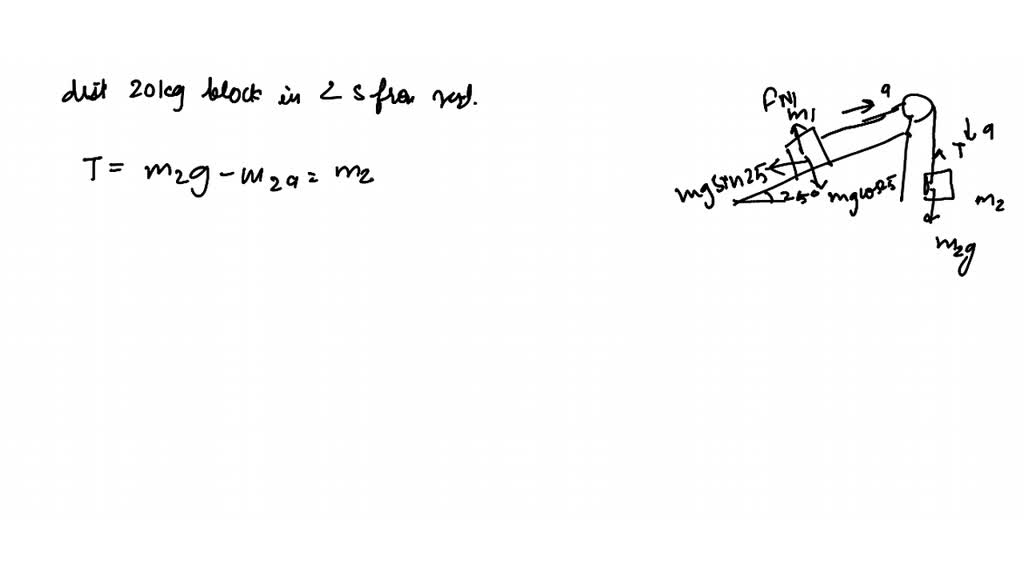 dist 20kg block in 2 s from rest.
T = m₂g - m₂a = m₂
FN₁
m₁
a
a
T
mg sin 25
25°
mg cos 25
m₂
m₂g